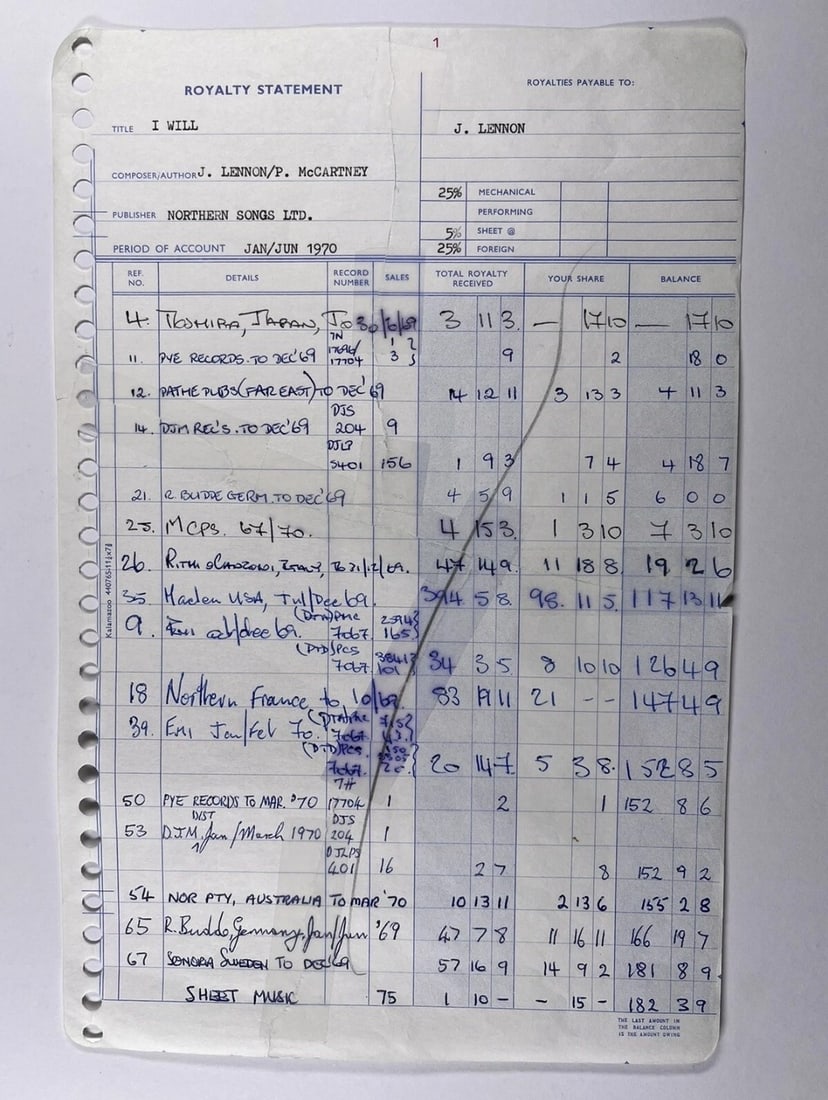 1
ROYALTY STATEMENT
ROYALTIES PAYABLE TO:
TITLE I WILL
J. LENNON
COMPOSER/AUTHOR J. LENNON/P. McCARTNEY
25% MECHANICAL
PERFORMING
PUBLISHER NORTHERN SONGS LTD.
5% SHEET @
PERIOD OF ACCOUNT JAN/JUN 1970
25% FOREIGN
REF. NO. DETAILS RECORD NUMBER SALES TOTAL ROYALTY RECEIVED YOUR SHARE BALANCE
4. TOSHIBA, JAPAN, TO 30/6/69 3 11 3. — 17 10 — 17 10
7N
11. PYE RECORDS. TO DEC '69 17696/ 17704 1 3 9 2 18 0
12. PATHE PUBS (FAR EAST) TO DEC '69 14 12 11 3 13 3 4 11 3
DJS
14. DJM REC'S. TO DEC '69 204 9
DJLP
5401 156 1 9 3 7 4 4 18 7
21. R. BUDDE GERM. TO DEC '69 4 5 9 1 1 5 6 0 0
25. MCPS. 67/70. 4 15 3. 1 3 10 7 3 10
26. ITALY, TO 31/12/69. 47 14 9. 11 18 8. 19 2 6
35. Maclen USA, Jul/Dec 69. 394 5 8. 98. 11 5. 117 13 11
(DTD) PMC
9. Emi oct/dec 69. 7067. 165
(DTD) PCS
7067 101 34 3 5. 8 10 10 126 4 9
18 Northern France to 10/69. 83 19 11 21 - - 147 4 9
39. EMI Jan/Feb 70. 7067.
(DTD) PCS.
7067. 20 14 7. 5 3 8. 152 8 5
7N
50 PYE RECORDS TO MAR. '70 17704 1 2 1 152 8 6
DIST DJS
53 D.J.M. Jan/March 1970 204 1
DJLPS
401 16 2 7 8 152 9 2
54 NOR PTY, AUSTRALIA TO MAR '70 10 13 11 2 13 6 155 2 8
65 R. Budde, Germany, Jan/Jun '69 47 7 8 11 16 11 166 19 7
67 SONORA SWEDEN TO DEC '69 57 16 9 14 9 2 181 8 9
SHEET MUSIC 75 1 10 - - 15 - 182 3 9
THE LAST AMOUNT IN
THE BALANCE COLUMN
IS THE AMOUNT OWING